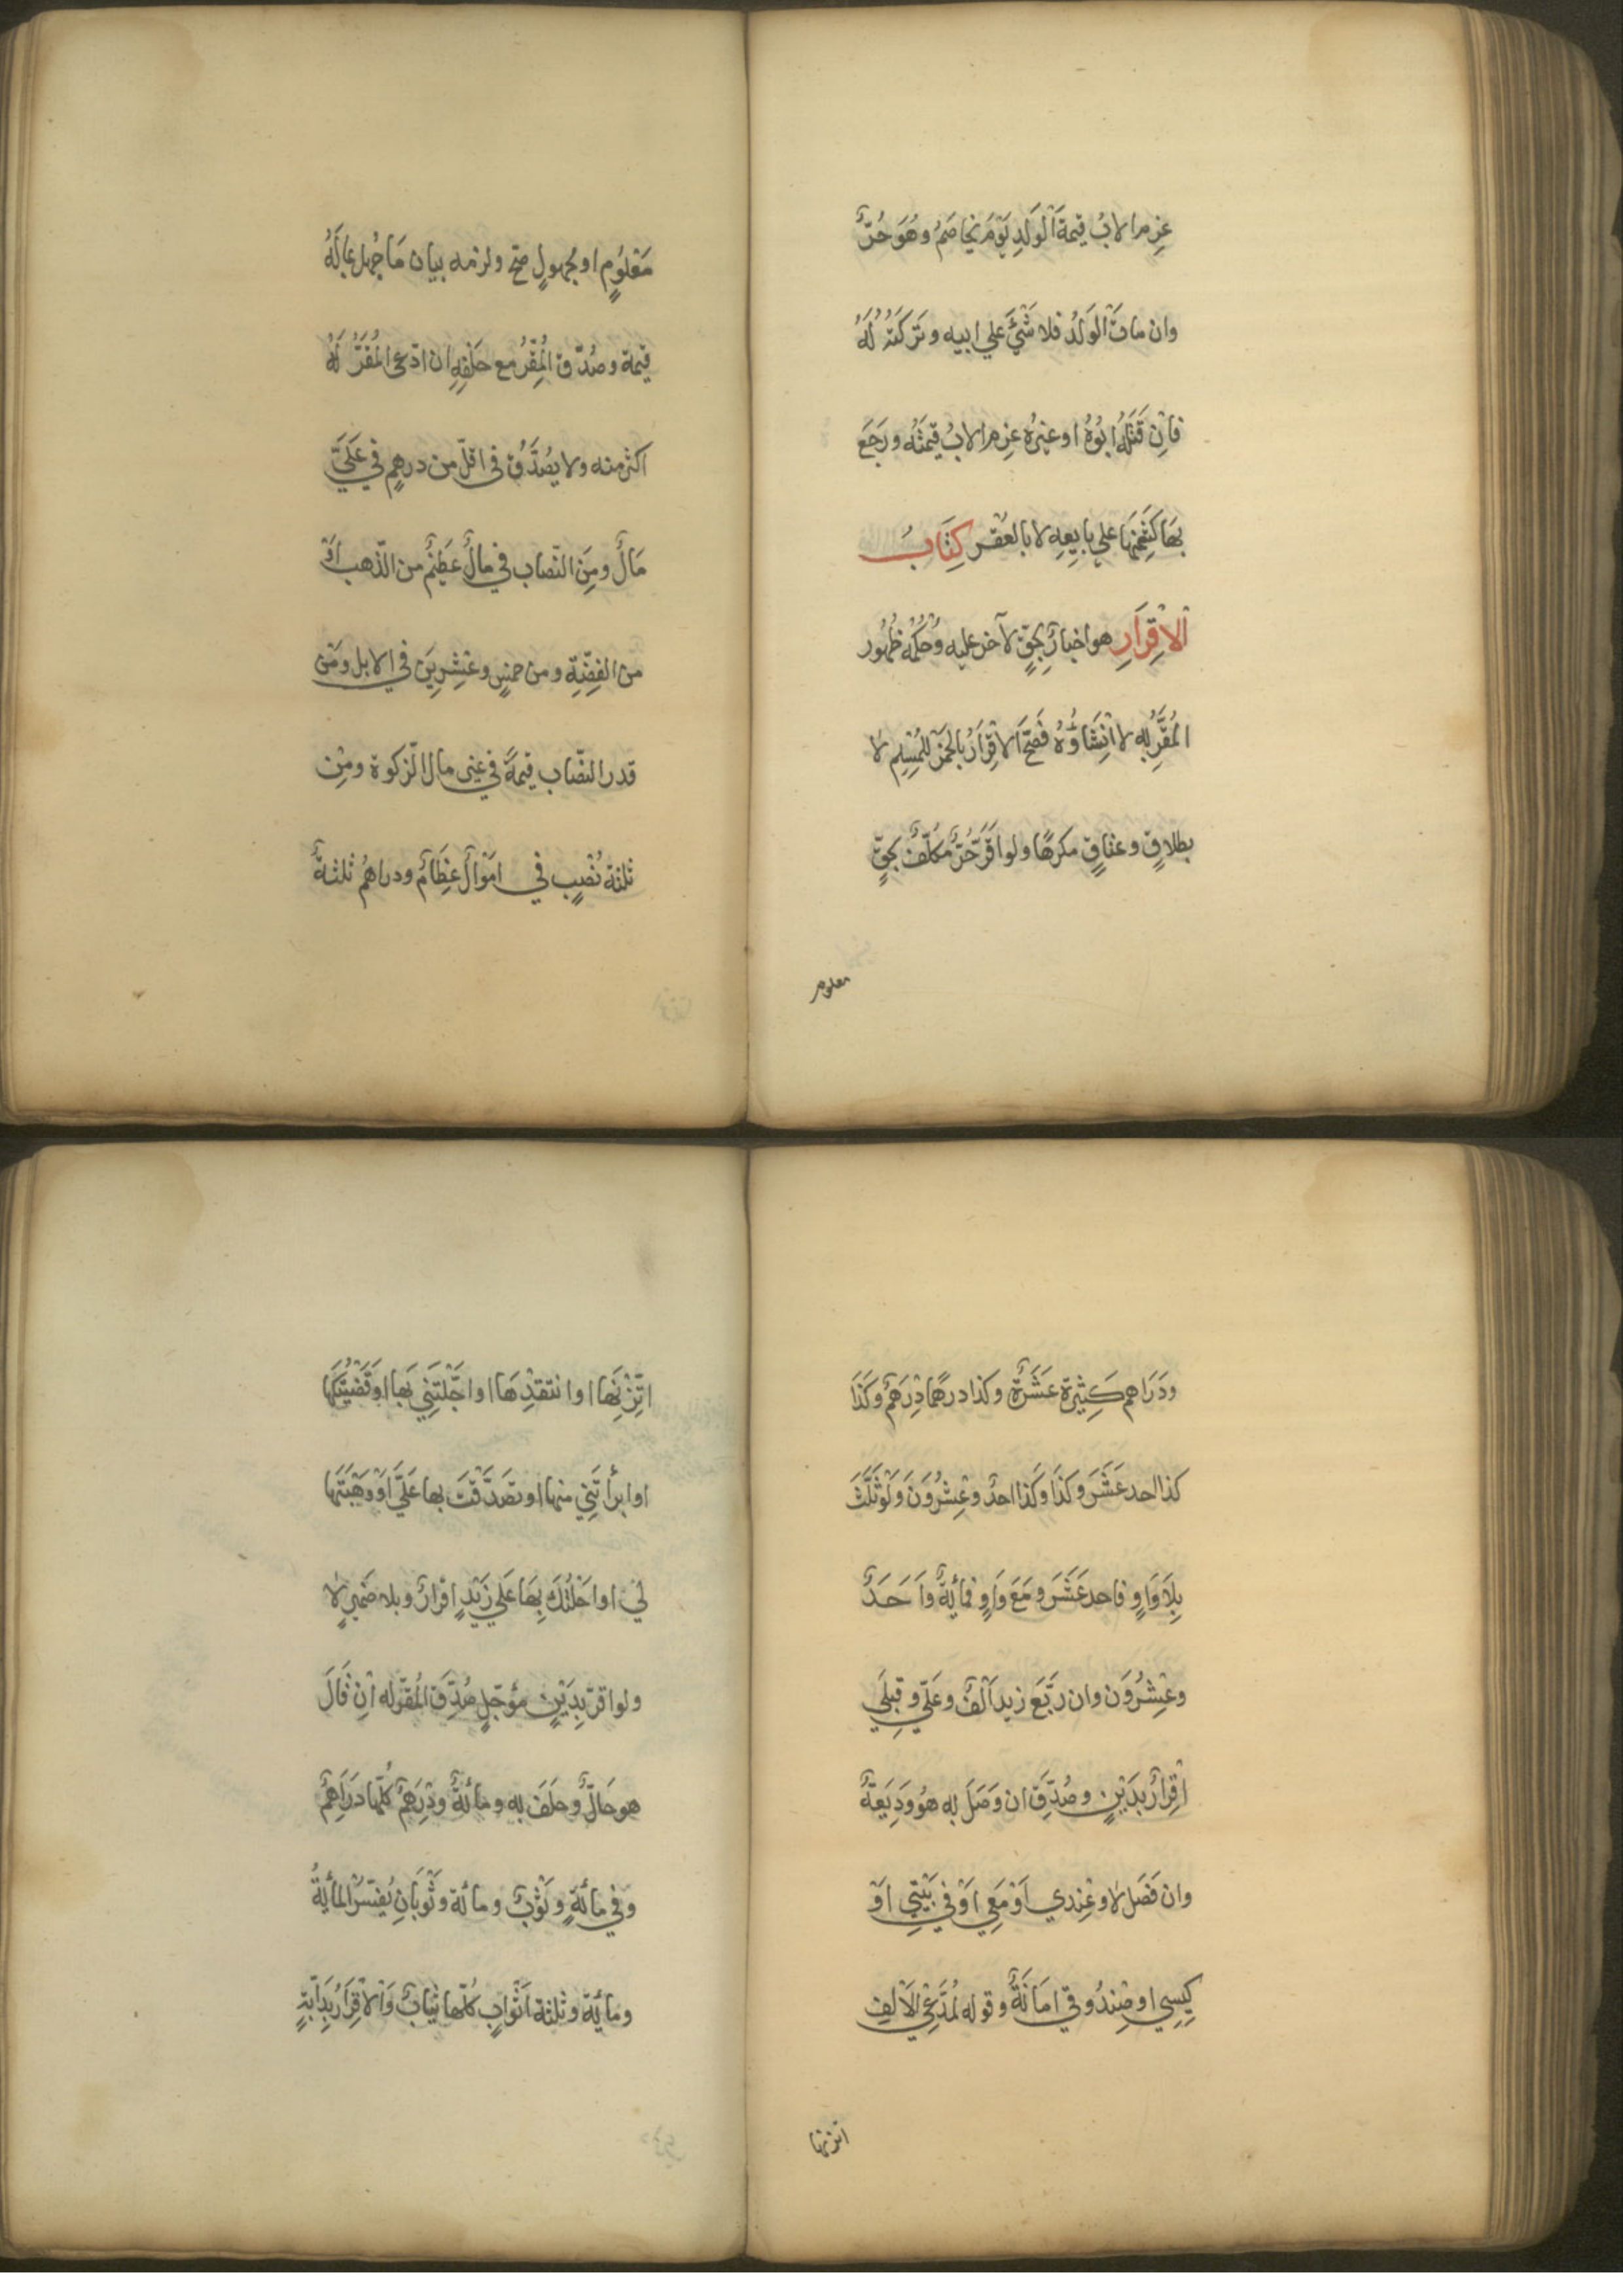 غرم الاب قيمة الولد يوم يخاصم وهو حرّ
وان مات الولد فلا شئ علي ابيه وتركته له
فان قتله ابوه او غيره غرم الاب قيمته ورجع
بها كثمنها علي بايعه لا بالعقر كتاب
الاقرار هو اخبار بحق لآخر عليه وحكمه ظهور
المقرّ به لا انشاؤه فصح الاقرار بالخمر للمسلم لا
بطلاق وعتاق مكرها ولو اقرّ حرّ مكلّف بحقّ
معلوم
معلوم او مجهول صح ولزمه بيان ما جهل بماله
قيمة وصدّق المقرّ مع حلفه ان ادّعى المقرّ له
اكثر منه ولا يصدّق في اقلّ من درهم في عليّ
مال ومن النّصاب في مال عظيم من الذّهب او
من الفضّة ومن خمس وعشرين في الابل ومن
قدر النّصاب قيمة في غير مال الزّكوة ومن
ثلثة نصب في اموال عظام ودراهم ثلثة
ودراهم كثيرة عشرة وكذا درهما درهم وكذا
كذا احد عشر وكذا وكذا احد وعشرون ولو ثلّث
بلا واو فاحد عشر ومع واو فمائة واحد
وعشرون وان ربّع زيد الف وعليّ وقبلي
اقرار بدين وصدّق ان وصل به هو وديعة
وان فصل لا وعندي او معي او في بيتي او
كيسي او صندوقي امانة وقوله لمدّعي الالف
اتزنها
اتّزنها او انتقدها او اجّلتني بها او قضيتكها
او ابرأتني منها او تصدّقت بها عليّ او وهبتها
لي او احلتك بها علي زيد اقرار وبلا ضمير لا
ولو اقرّ بدين مؤجّل صدّق المقرّ له ان قال
هو حالّ وحلف به ومائة ودرهم كلّها دراهم
وفي مائة وثوب ومائة وثوبان يفسّر المائة
ومائة وثلثة اثواب كلّها ثياب والاقرار بدابّة